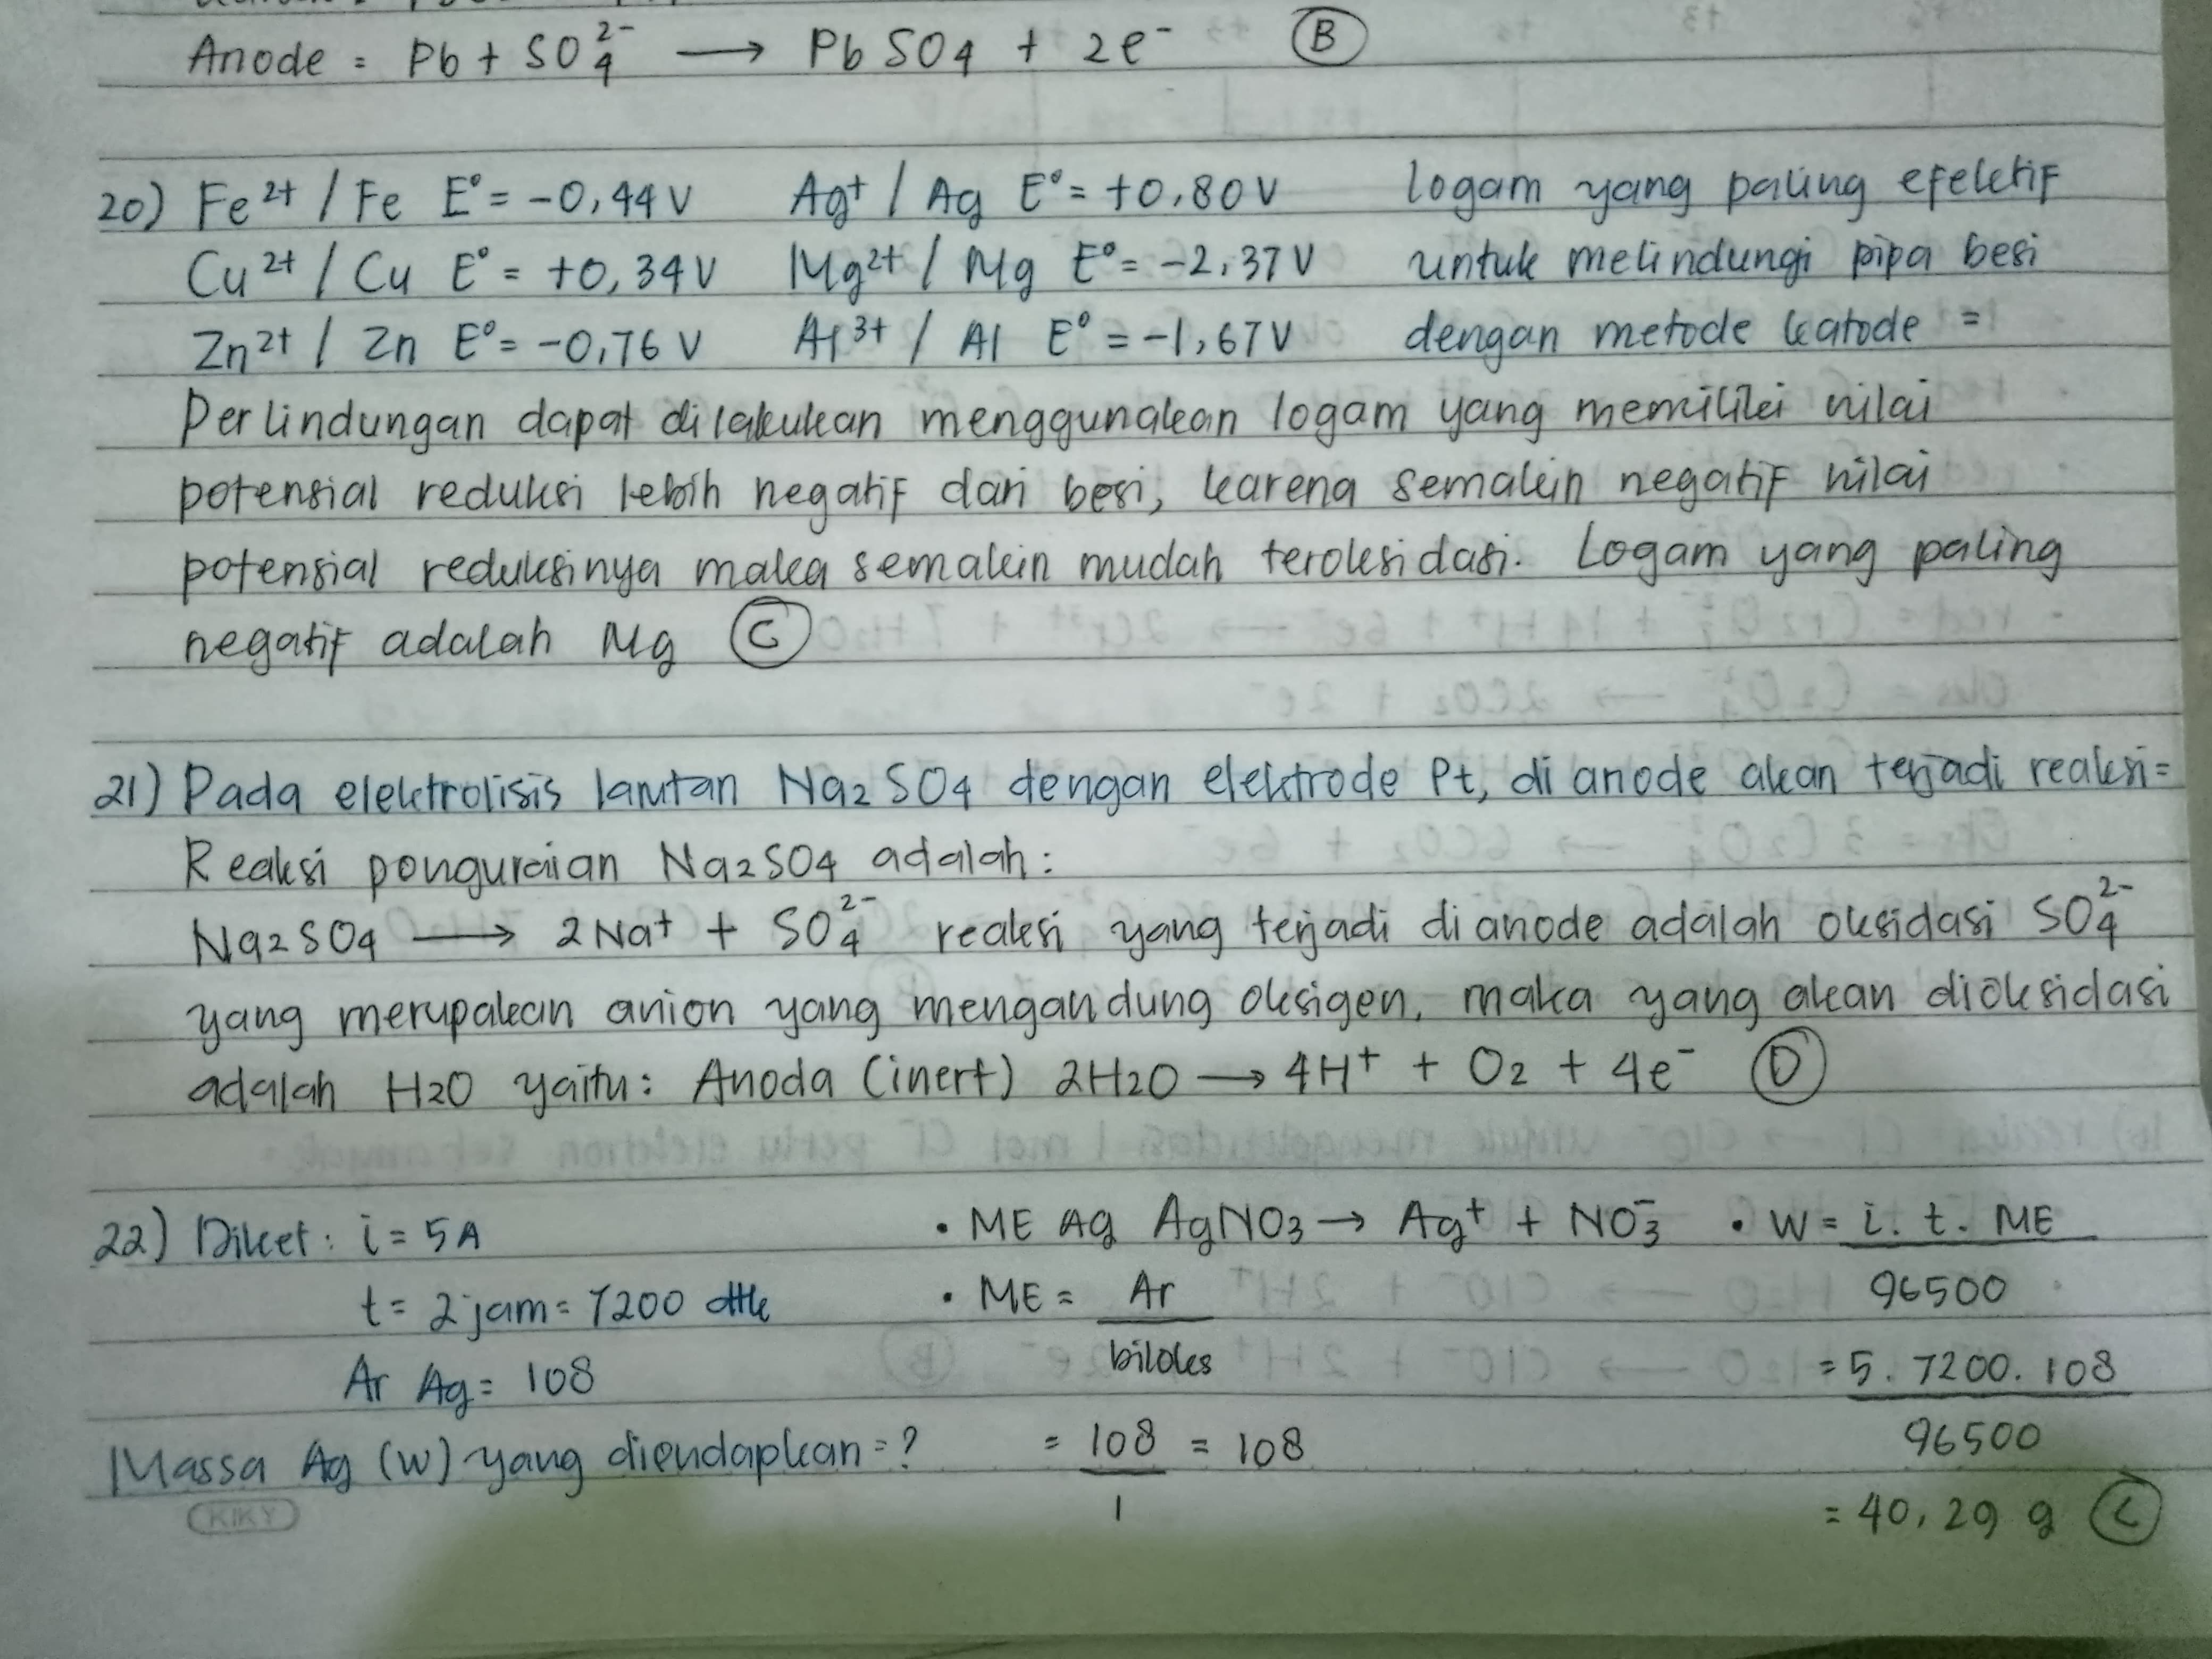 Anode = Pb + SO₄²⁻ ⟶ PbSO₄ + 2e⁻ (B)
20) Fe²⁺ / Fe E° = -0,44 V Ag⁺ / Ag E° = +0,80 V logam yang paling efektif
Cu²⁺ / Cu E° = +0,34 V Mg²⁺ / Mg E° = -2,37 V untuk melindungi pipa besi
Zn²⁺ / Zn E° = -0,76 V Al³⁺ / Al E° = -1,67 V dengan metode katode =
Perlindungan dapat dilakukan menggunakan logam yang memiliki nilai
potensial reduksi lebih negatif dari besi, karena semakin negatif nilai
potensial reduksinya maka semakin mudah teroksidasi. Logam yang paling
negatif adalah Mg (C)
21) Pada elektrolisis larutan Na₂SO₄ dengan elektrode Pt, di anode akan terjadi reaksi =
Reaksi penguraian Na₂SO₄ adalah :
Na₂SO₄ ⟶ 2Na⁺ + SO₄²⁻ reaksi yang terjadi di anode adalah oksidasi SO₄²⁻
yang merupakan anion yang mengandung oksigen, maka yang akan dioksidasi
adalah H₂O yaitu : Anoda (inert) 2H₂O ⟶ 4H⁺ + O₂ + 4e⁻ (D)
22) Diket : i = 5 A • ME Ag AgNO₃ → Ag⁺ + NO₃⁻ • W = i . t . ME
t = 2 jam = 7200 dtk • ME = Ar 96500
biloks = 5 . 7200 . 108
Ar Ag = 108 96500
Massa Ag (W) yang diendapkan = ? = 108 = 108
1 = 40,29 g (C)
KIKY